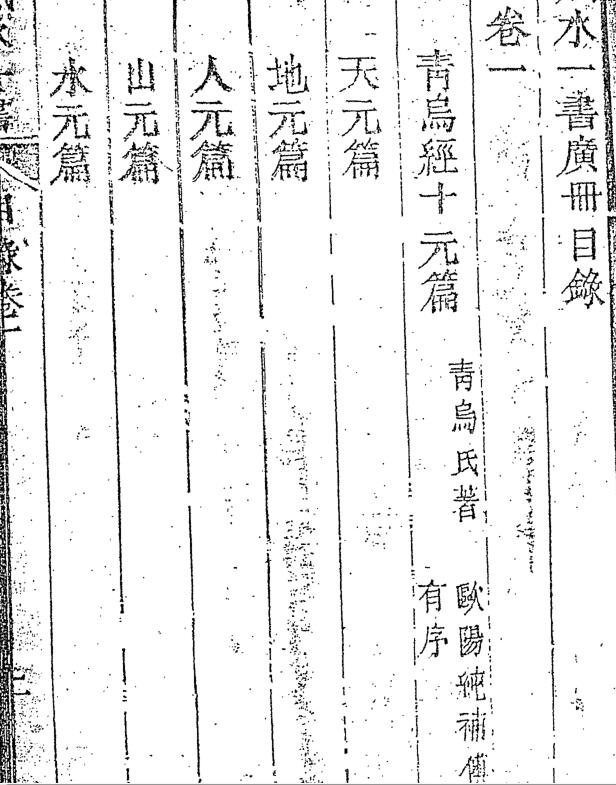 水一書廣冊目錄
卷一
青烏經十元篇 青烏氏著 歐陽純補傳 有序
天元篇
地元篇
人元篇
山元篇
水元篇
目錄卷一